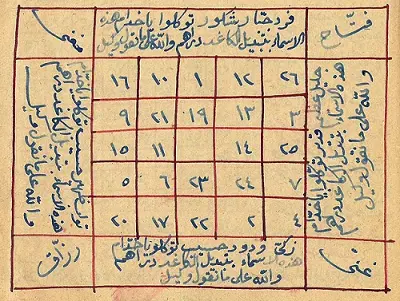 فتاح
فرد شكور توكلوا يا خدام هذه
الاسماء بتبديل الكاغد دراهم والله على ما نقول وكيل
توكلوا يا خدام
هذه الاسماء بتبديل الكاغد دراهم
والله على ما نقول وكيل
٢٦ ١٢ ١ ١٠ ١٦
٣ ١٣ ١٩ ٢١ ٩
٢٥ ١٤ ١١ ١٥
٧ ٢٤ ٢٣ ٦ ٥
٤ ٢ ٢٢ ١٧ ٢٠
حسيب توكلوا يا خدام
هذه الاسماء بتبديل الكاغد دراهم
والله على ما نقول وكيل
زكي ودود حسيب توكلوا يا خدام
هذه الاسماء بتبديل الكاغد دراهم
والله على ما نقول وكيل
رزاق